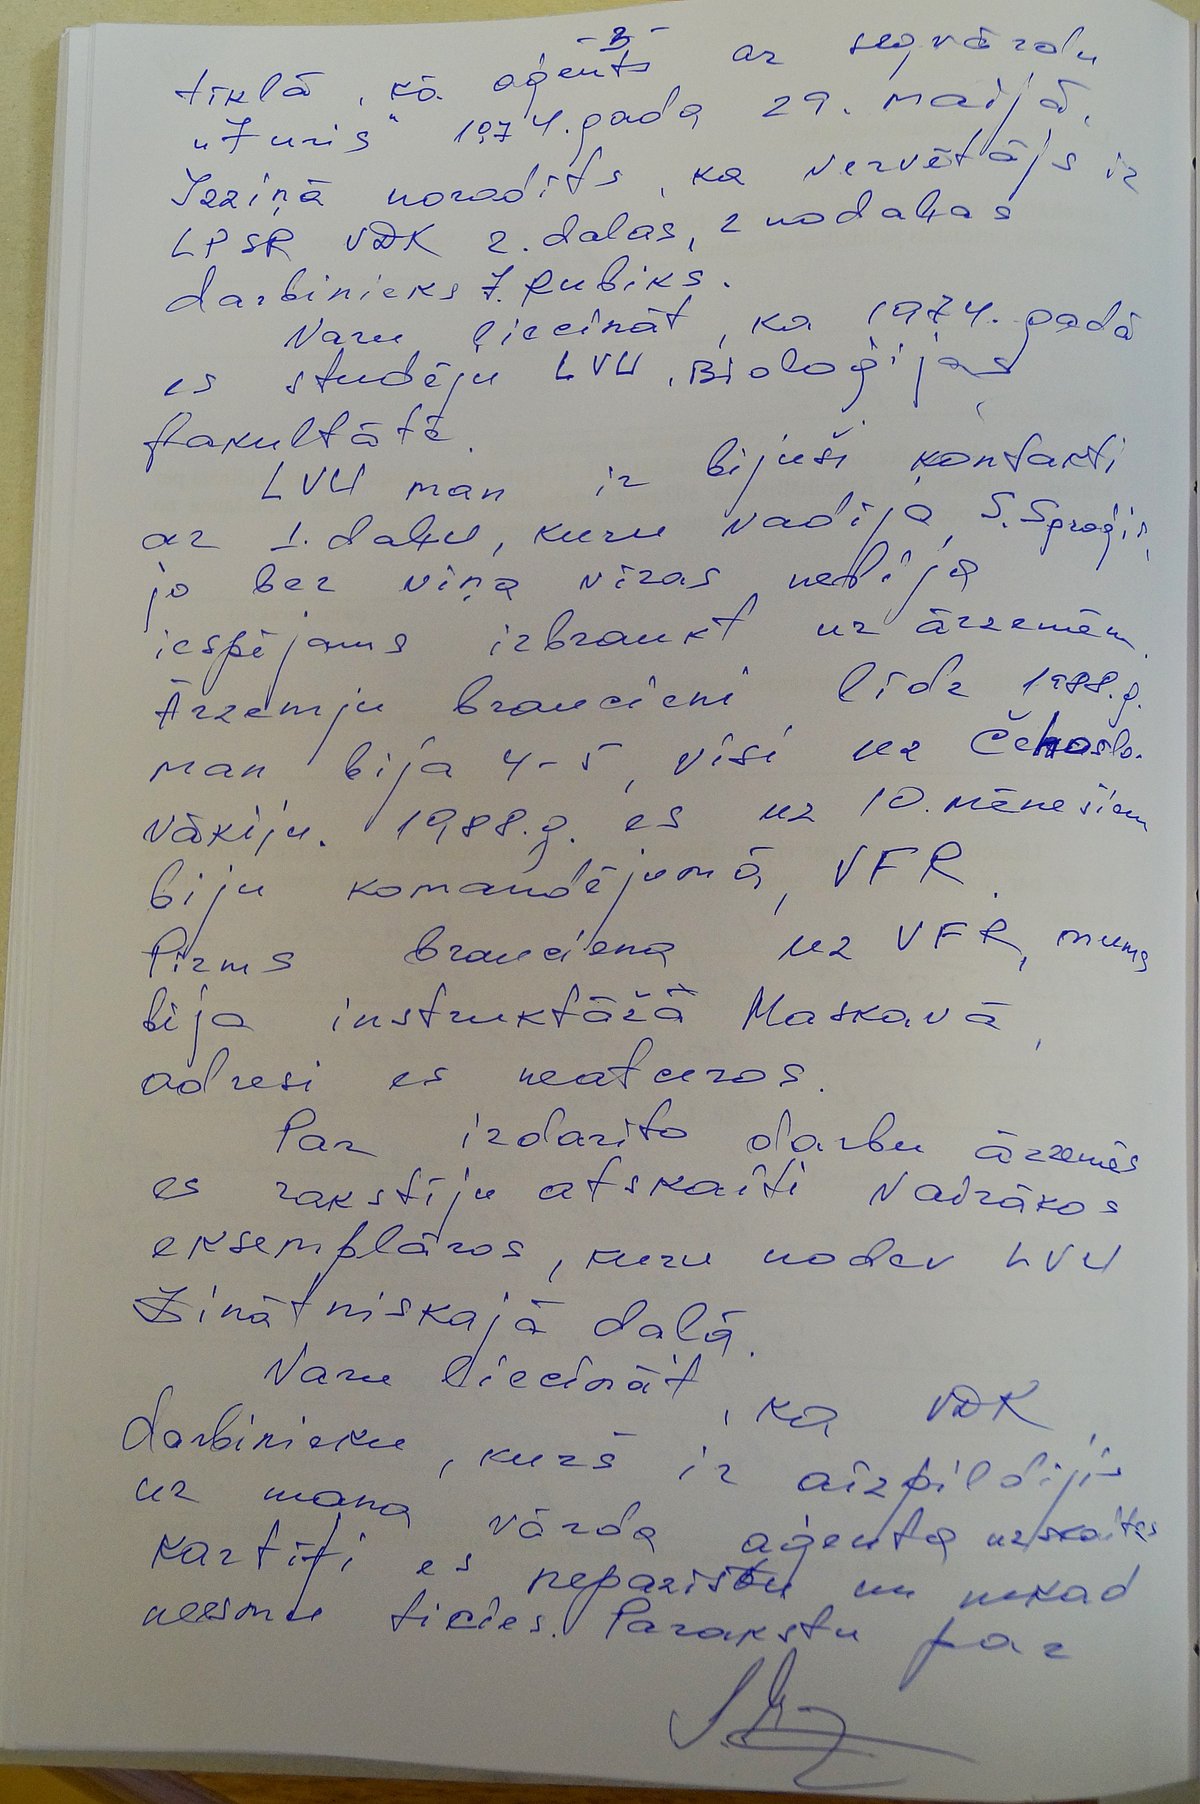 - 3 -
tīklā, kā aģents ar segvārdu
"Juris" 1974. gada 29. maijā.
Izziņā noradīts, ka vervētājs ir
LPSR VDK 2. daļas, 2 nodaļas
darbinieks J. Rubiks.
Varu liecināt, ka 1974. gadā
es studēju LVU, Bioloģijas
fakultātē.
LVU man ir bijuši kontakti
ar 1. daļu, kuru vadīja S. Sproģis,
jo bez viņa vīzas nebija
iespējams izbraukt uz ārzemēm.
Ārzemju braucieni līdz 1988. g.
man bija 4-5, visi uz Čehoslo-
vākiju. 1988. g. es uz 10. mēnešiem
biju komandējumā, VFR.
Pirms brauciena uz VFR, mums
bija instruktāžā Maskavā,
adresi es neatceros.
Par izdarīto darbu ārzemēs
es rakstīju atskaiti vairākos
eksemplāros, kuru nodev LVU
Zinātniskajā daļā.
Varu liecināt, ka VDK
darbinieku, kurš ir aizpildījis
uz mana vārda aģenta uzskaites
kartīti es nepazistu un nekad
neesmu ticies. Parakstu par